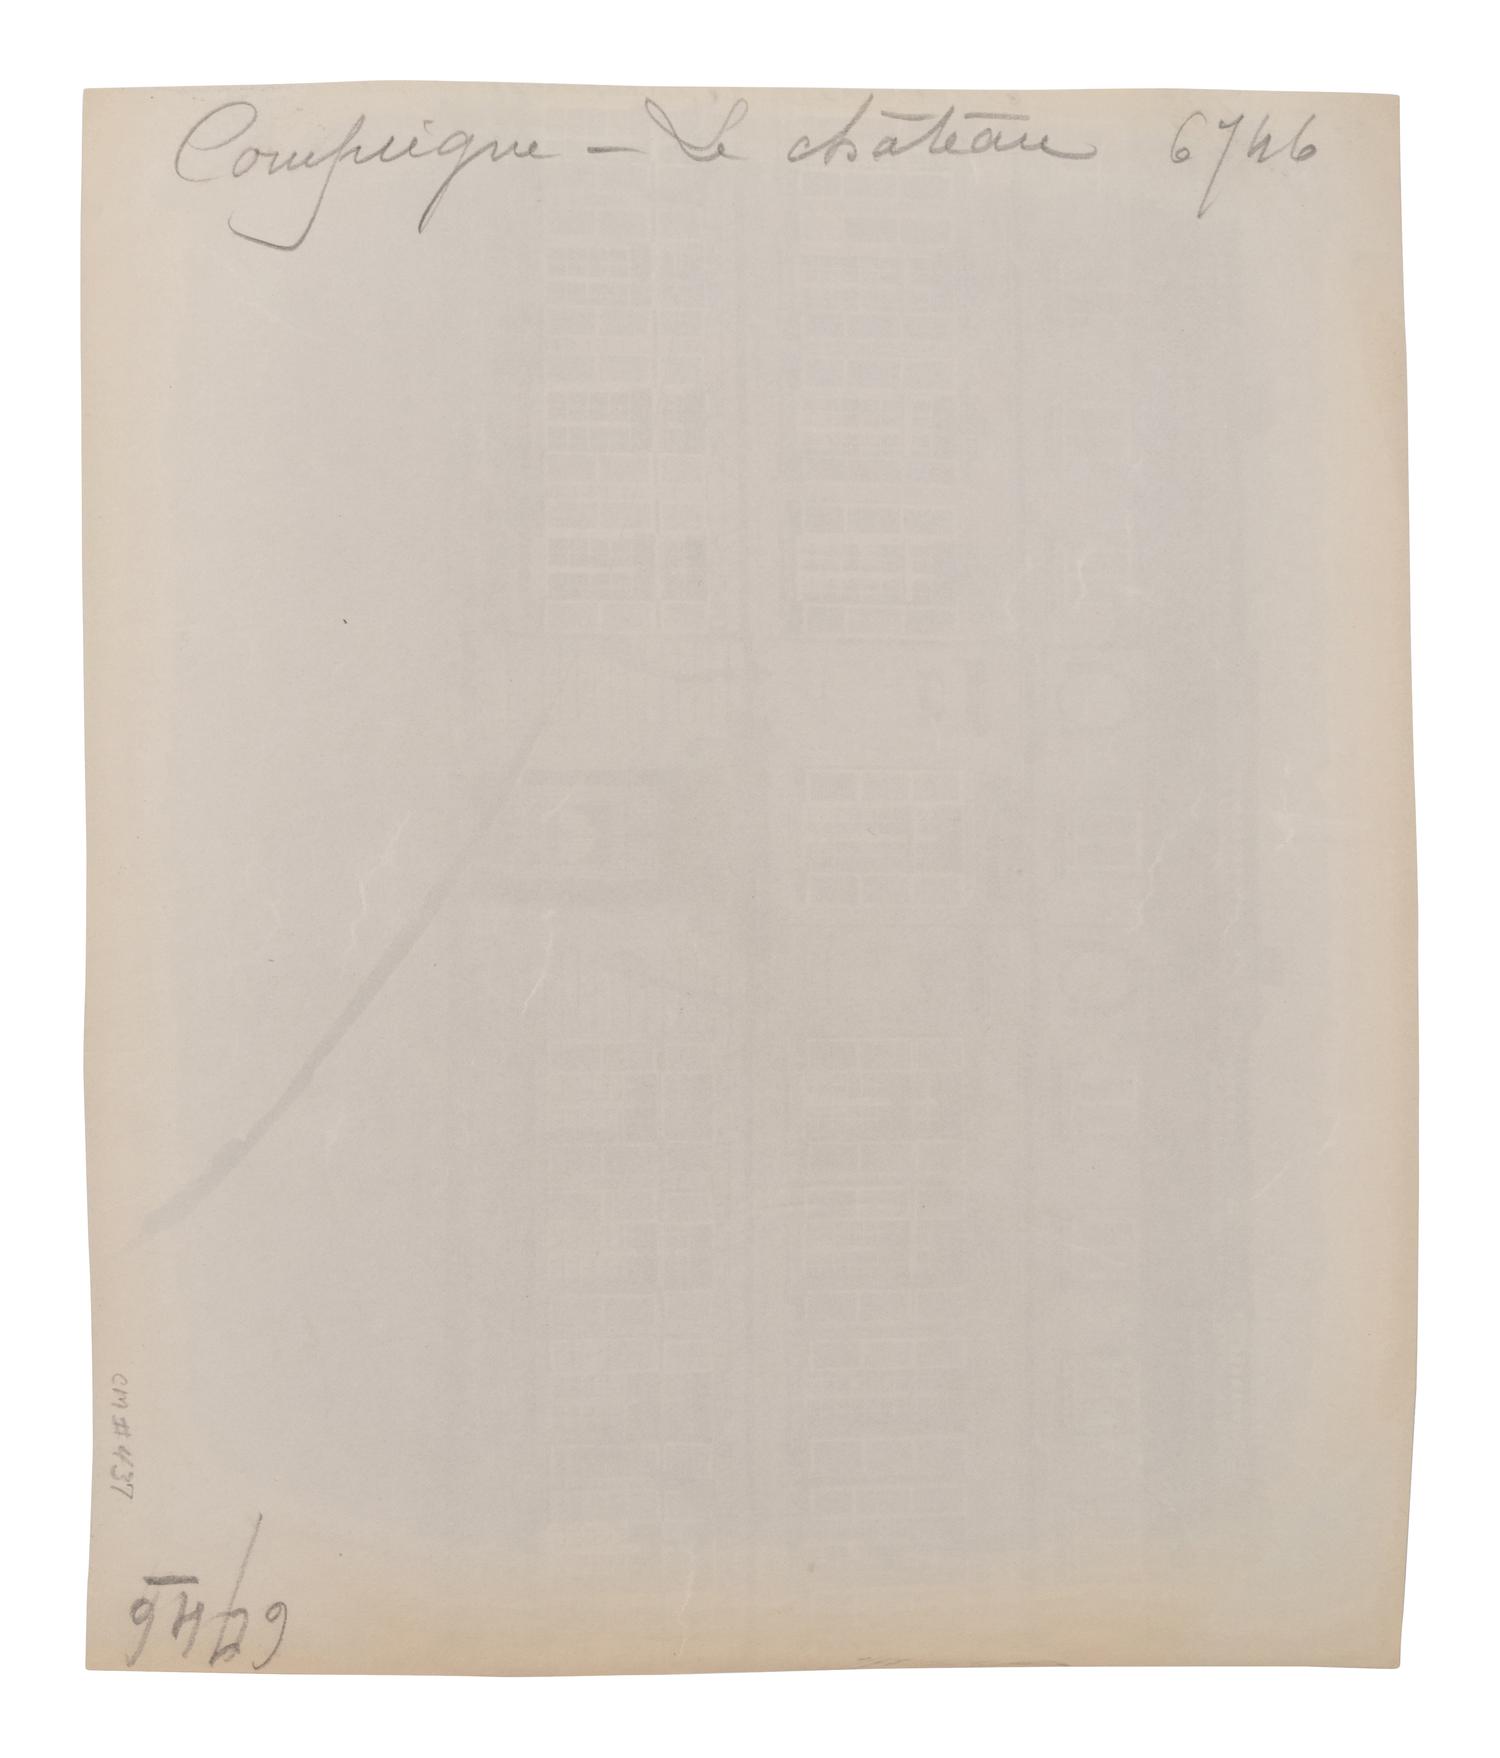 Compiègne – Le château 6746
CM#437
6746